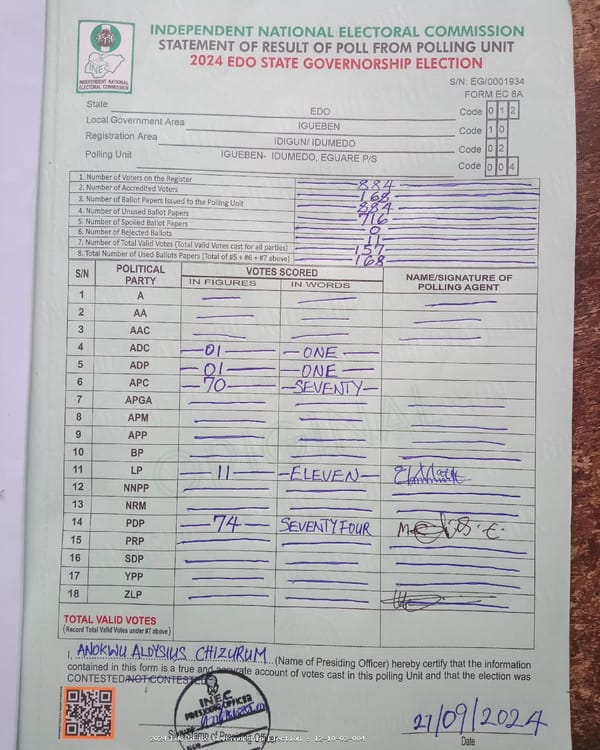 INDEPENDENT NATIONAL ELECTORAL COMMISSION
STATEMENT OF RESULT OF POLL FROM POLLING UNIT
2024 EDO STATE GOVERNORSHIP ELECTION
INEC
INDEPENDENT NATIONAL
ELECTORAL COMMISSION
S/N: EG/0001934
FORM EC 8A
State EDO Code 0 1 2
Local Government Area IGUEBEN Code 1 0
Registration Area IDIGUN/ IDUMEDO Code 0 2
Polling Unit IGUEBEN- IDUMEDO, EGUARE P/S Code 0 0 4
1. Number of Voters on the Register 884
2. Number of Accredited Voters 168
3. Number of Ballot Papers Issued to the Polling Unit 884
4. Number of Unused Ballot Papers 716
5. Number of Spoiled Ballot Papers 0
6. Number of Rejected Ballots 11
7. Number of Total Valid Votes (Total Valid Votes cast for all parties) 157
8. Total Number of Used Ballots Papers (Total of #5 + #6 + #7 above) 168
S/N POLITICAL PARTY VOTES SCORED NAME/SIGNATURE OF POLLING AGENT
IN FIGURES IN WORDS
1 A
2 AA
3 AAC
4 ADC 01 ONE
5 ADP 01 ONE
6 APC 70 SEVENTY
7 APGA
8 APM
9 APP
10 BP
11 LP 11 ELEVEN
12 NNPP
13 NRM
14 PDP 74 SEVENTY FOUR
15 PRP
16 SDP
17 YPP
18 ZLP
TOTAL VALID VOTES
(Record Total Valid Votes under #7 above)
I, ANOKWU ALOYSIUS CHIZURUM (Name of Presiding Officer) hereby certify that the information
contained in this form is a true and accurate account of votes cast in this polling Unit and that the election was
CONTESTED/NOT CONTESTED
INEC
PRESIDING OFFICER
of Presiding
21/09/2024
Date